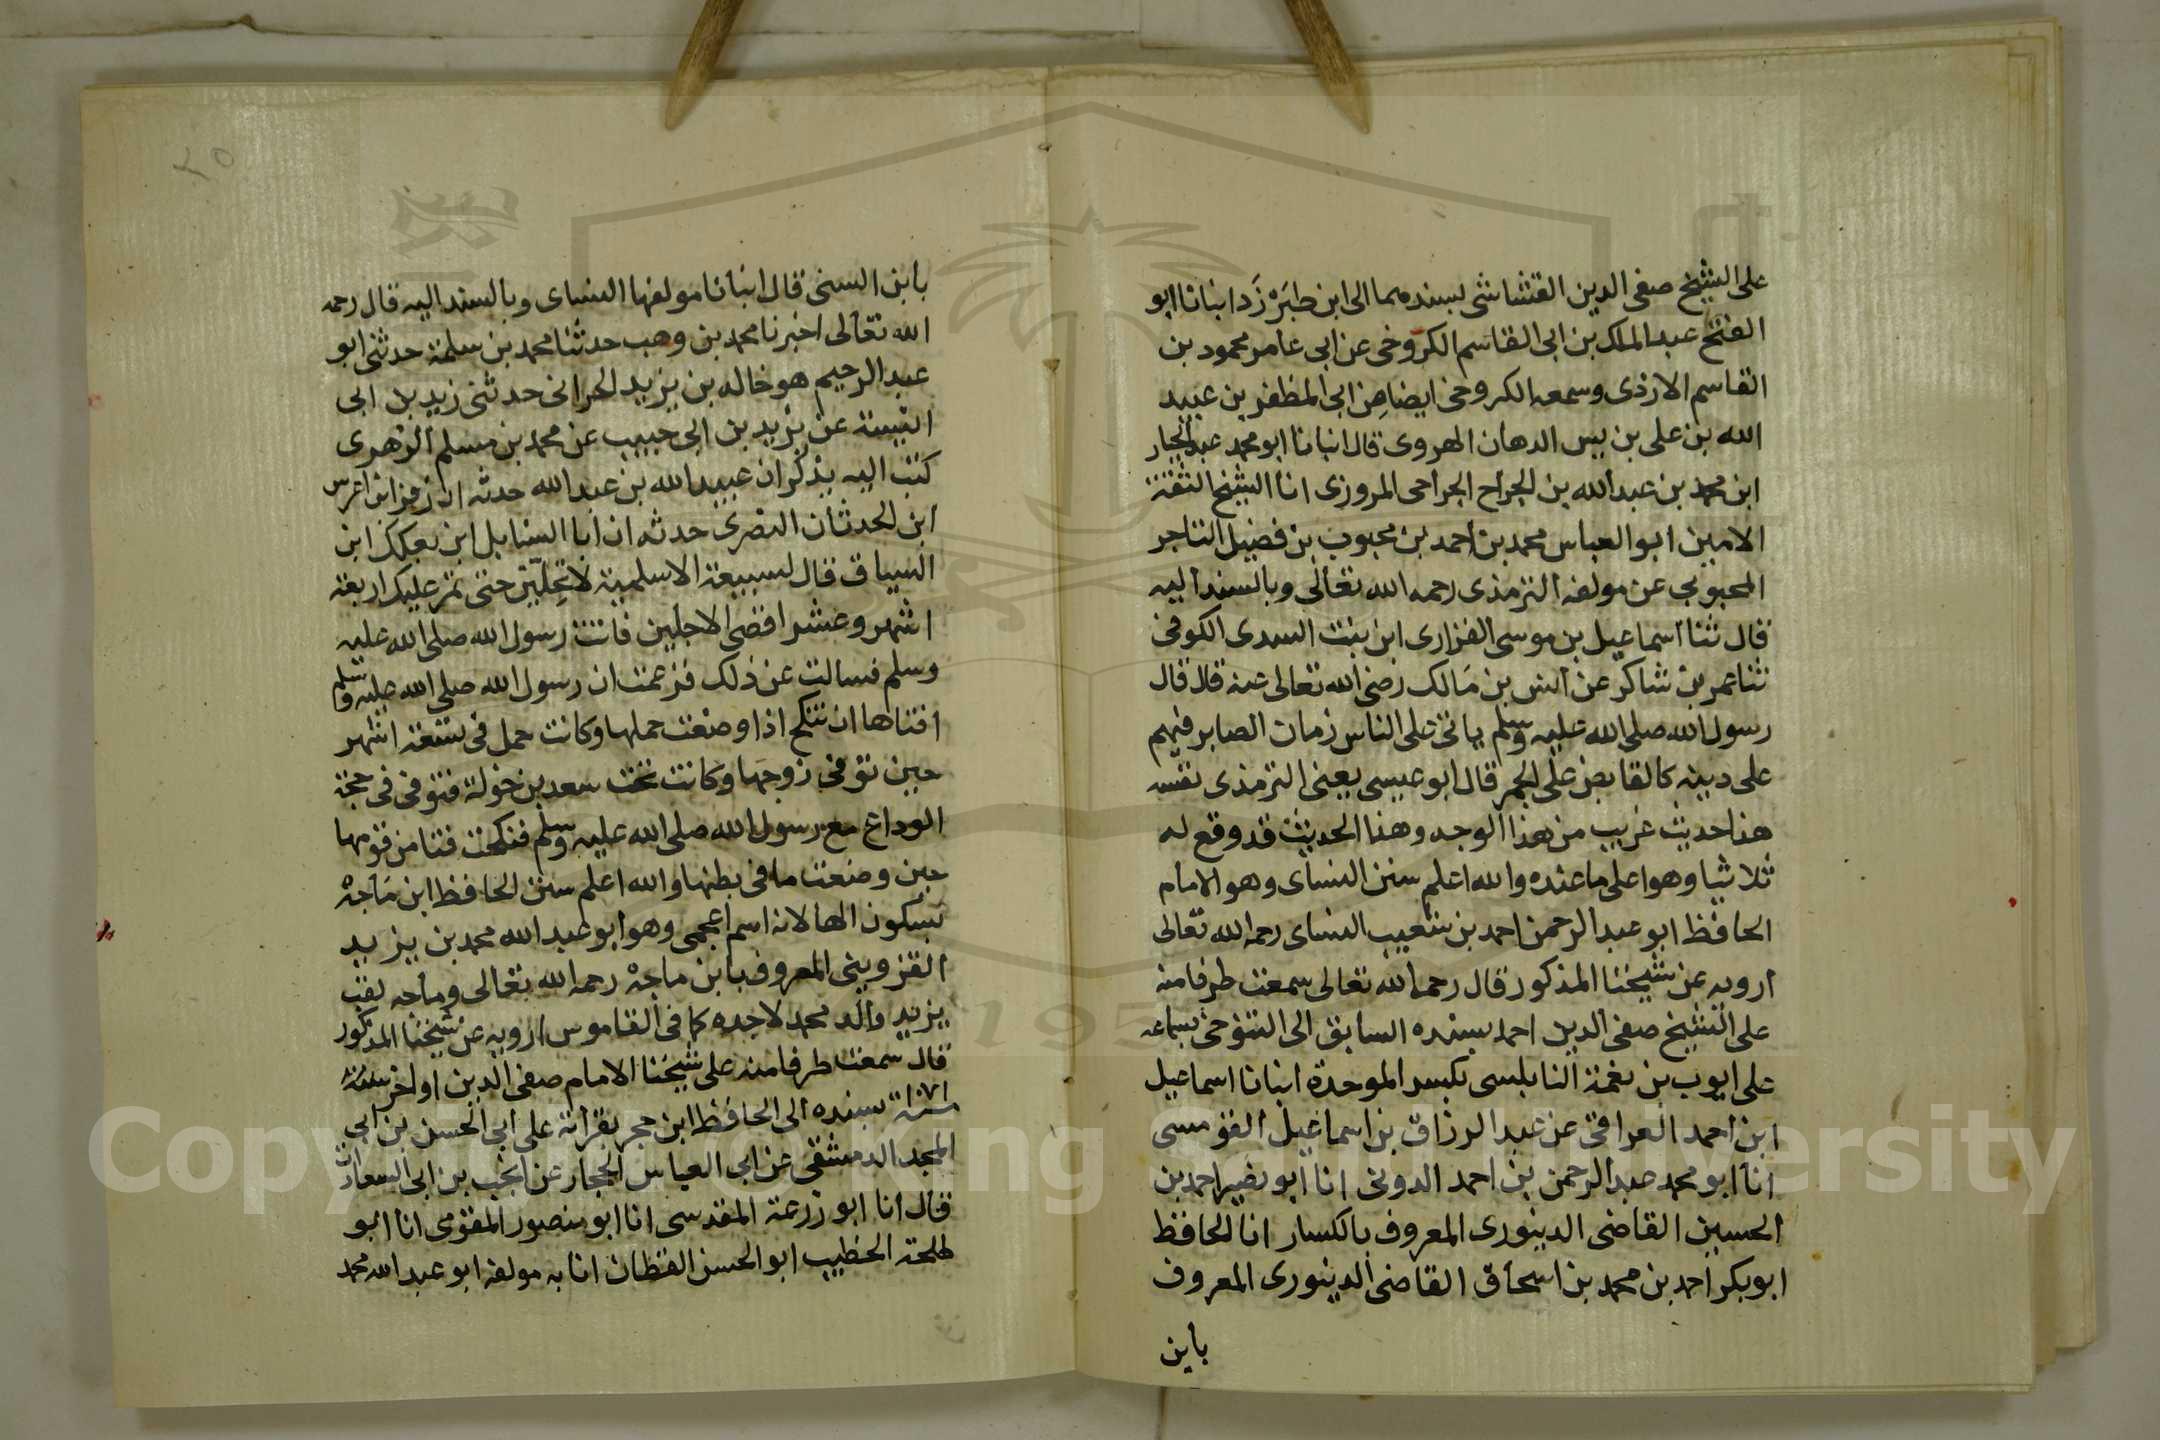 على الشيخ صفى الدين القشاشى بسنده مما الى ابن طبَرْزَد انبانا ابو
الفتح عبد الملك بن ابى القاسم الكروخى عن ابى عامر محمود بن
القاسم الازدى وسمعه الكروخى ايضا من ابى المظفر بن عبيد
الله بن على بن يس الدهان الهروى قال انبانا ابو محمد عبد الجبار
ابن محمد بن عبد الله بن الجراح الجراحى المروزى انا الشيخ الثقة
الامين ابو العباس محمد بن احمد بن محبوب بن فضيل التاجر
المحبوبى عن مولفه الترمذى رحمه الله تعالى وبالسند اليه
قال ثنا اسماعيل بن موسى الفزارى ابن بنت السدى الكوفى
ثنا عمر بن شاكر عن انس بن مالك رضى الله تعالى عنه قال قال
رسول الله صلى الله عليه وسلم ياتى على الناس زمان الصابر فيهم
على دينه كالقابض على الجمر قال ابو عيسى يعنى الترمذى نفسه
هذا حديث غريب من هذا الوجه وهذا الحديث قد وقع له
ثلاثيا وهو اعلى ما عنده والله اعلم سنن النساى وهو الامام
الحافظ ابو عبد الرحمن احمد بن شعيب النساى رحمه الله تعالى
ارويه عن شيخنا المذكور قال رحمه الله تعالى سمعت طرفا منه
على الشيخ صفى الدين احمد بسنده السابق الى التنوخى بسماعه
على ايوب بن نعمة النابلسى بكسر الموحدة انبانا اسماعيل
ابن احمد العراقى عن عبد الرزاق بن اسماعيل القومسى
انا ابو محمد عبد الرحمن بن احمد الدونى انا ابو نصير احمد بن
الحسين القاضى الدينورى المعروف بالكسار انا الحافظ
ابو بكر احمد بن محمد بن اسحاق القاضى الدينورى المعروف
بابن
٢٥
بابن السنى قال انبانا مولفها النساى وبالسند اليه قال رحمه
الله تعالى اخبرنا محمد بن وهب حدثنا محمد بن سلمة حدثنى ابو
عبد الرحيم هو خالد بن يزيد الحرانى حدثنى زيد بن ابى
انيسة عن يزيد بن ابى حبيب عن محمد بن مسلم الزهرى
كتب اليه يذكر ان عبيد الله بن عبد الله حدثه ان زفر ابن اوس
ابن الحدثان النصرى حدثه ان ابا السنابل ابن بعكك ابن
السباق قال لسبيعة الاسلمية لا تحلّين حتى تمر عليك اربعة
اشهر وعشر اقصى الاجلين فاتت رسول الله صلى الله عليه
وسلم فسالت عن ذلك فزعمت ان رسول الله صلى الله عليه وسلم
افتاها ان تنكح اذا وضعت حملها وكانت حمل فى تسعة اشهر
حين توفى زوجها وكانت تحت سعد بن خولة فتوفى فى حجة
الوداع مع رسول الله صلى الله عليه وسلم فنكحت فتا من قومها
حين وضعت ما فى بطنها والله اعلم سنن الحافظ ابن مَاجهْ
بسكون الها لانه اسم اعجمى وهو ابو عبد الله محمد بن يزيد
القزوينى المعروف بابن ماجهْ رحمه الله تعالى وماجه لقب
يزيد والد محمد لا جده كما فى القاموس ارويه عن شيخنا المذكور
قال سمعت طرفا منه على شيخنا الامام صفى الدين اواخر سنة
١٠٧١ سنة بسنده الى الحافظ ابن حجر بقراته على ابى الحسن بن ابى
المجد الدمشقى عن ابى العباس الحجار عن انجب بن ابى السعادات
قال انا ابو زرعة المقدسى انا ابو منصور المقومى انا ابو
طلحة الخطيب ابو الحسن القطان انا به مولفه ابو عبد الله محمد
Copyright © King Saud University
195